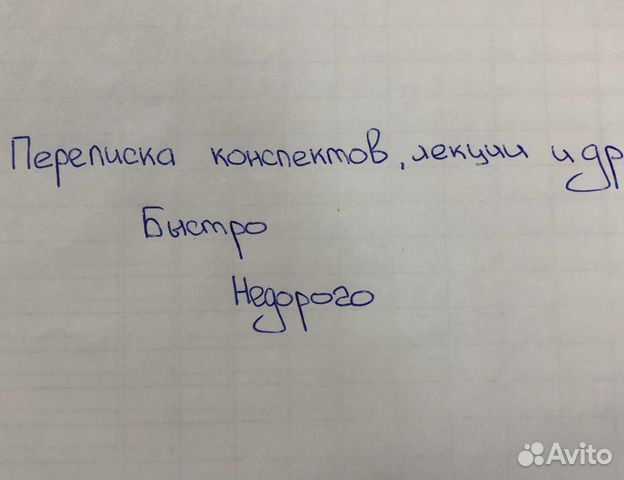 Переписка конспектов, лекции и др
Быстро
Недорого
Avito